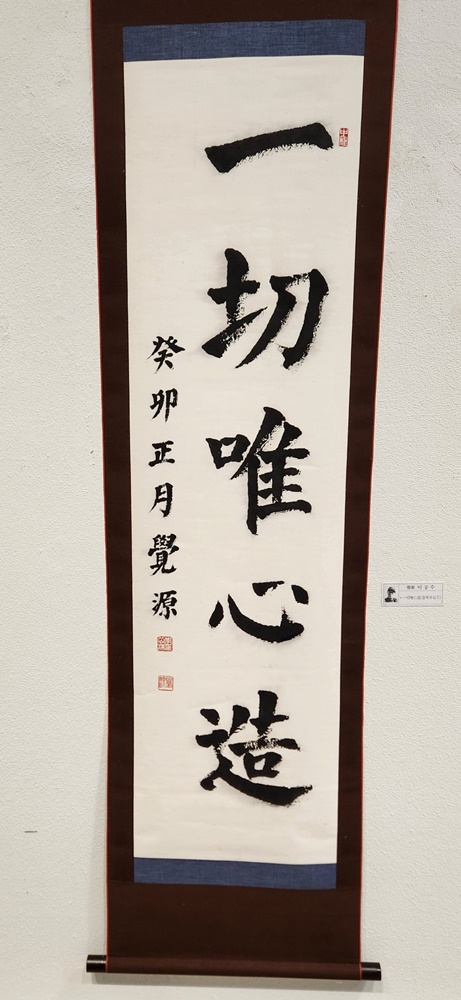 一切唯心造
癸卯正月覺源